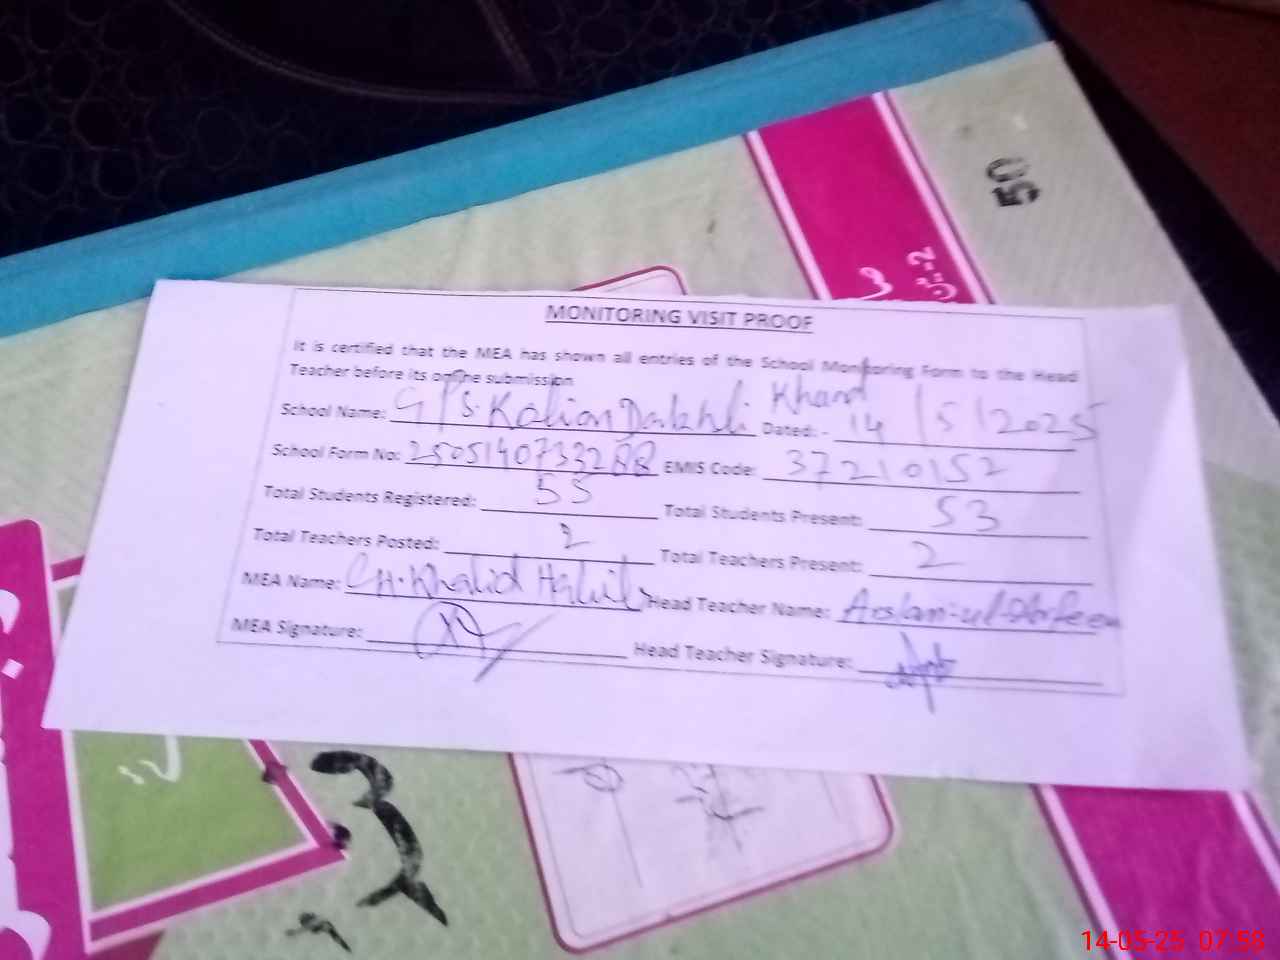 50
MONITORING VISIT PROOF
It is certified that the MEA has shown all entries of the School Monitoring Form to the Head
Teacher before its online submission
School Name: G/P/S. Kalian Dakhli Khand Dated: - 14/5/2025
School Form No: 2505140733288 EMIS Code: 37210152
Total Students Registered: 55 Total Students Present: 53
Total Teachers Posted: 2 Total Teachers Present: 2
MEA Name: CH. Khalid Habib Head Teacher Name: Arslan-ul-Arfeen
MEA Signature: Head Teacher Signature:
14-05-25 07:58